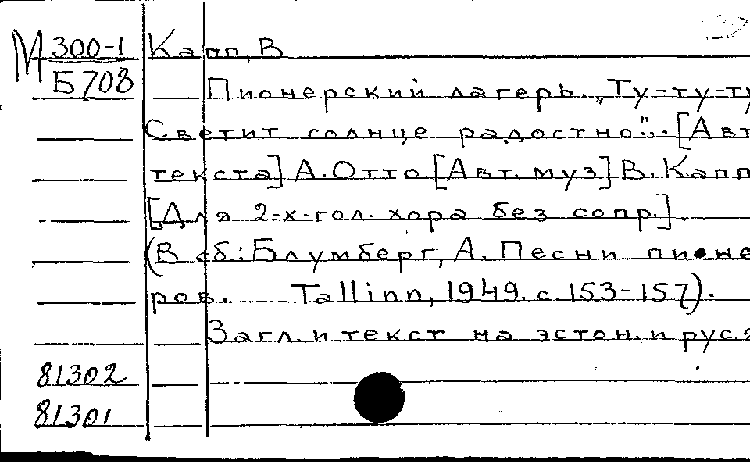 М 300-1 Капп, В
Б708
Пионерский лагерь. „Ту-ту-ту
Светит солнце радостно". [Авт.
текста] А. Отто [Авт. муз] В. Капп
[Для 2-х-гол. хора без сопр.]
(В сб.: Блумберг, А. Песни пионе-
ров. Tallinn, 1949. с. 153-157).
Загл. и текст на эстон. и рус. я
81302
81301